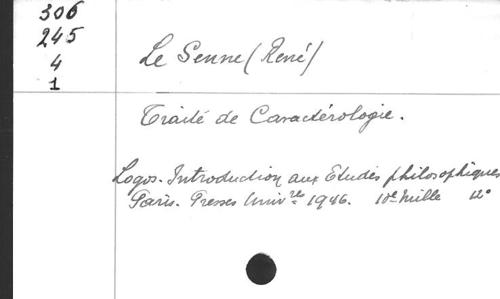 306
245
4
1
Le Senne (René)
Traité de Caractérologie.
Logos. Introduction aux Etudes philosophiques
Paris. Presses Univ.res 1946. 10e mille 12°